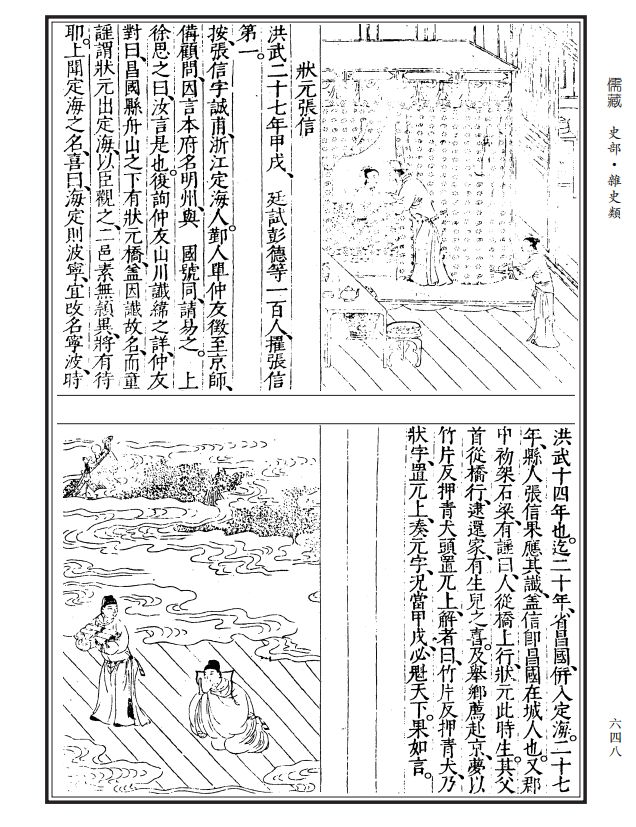 儒藏 史部・雜史類
狀元張信
洪武二十七年甲戌、 廷試彭德等一百人、擢張信
第一。
按、張信字誠甫、浙江定海人。鄞人單仲友徵至京師、
備顧問、因言本府名明州、與 國號同、請易之。上
徐思之曰、汝言是也。後詢仲友山川讖緯之詳、仲友
對曰、昌國縣舟山之下有狀元橋、盖因讖故名、而童
謡謂狀元出定海、以臣觀之、二邑素無穎異、將有待
耶。上聞定海之名、喜曰、海定則波寧、宜改名寧波、時
洪武十四年也。迄二十年、省昌國、併入定海。二十七
年、縣人張信果應其讖、盖信即昌國在城人也。又郡
中初架石梁、有謡曰、人從橋上行、狀元此時生。其父
首從橋行、逮還家、有生兒之喜。及舉鄉薦赴京、夢以
竹片反押青犬頭置兀上、解者曰、竹片反押青犬、乃
狀字、置兀上、奏元字、況當甲戌、必魁天下。果如言。
六四八